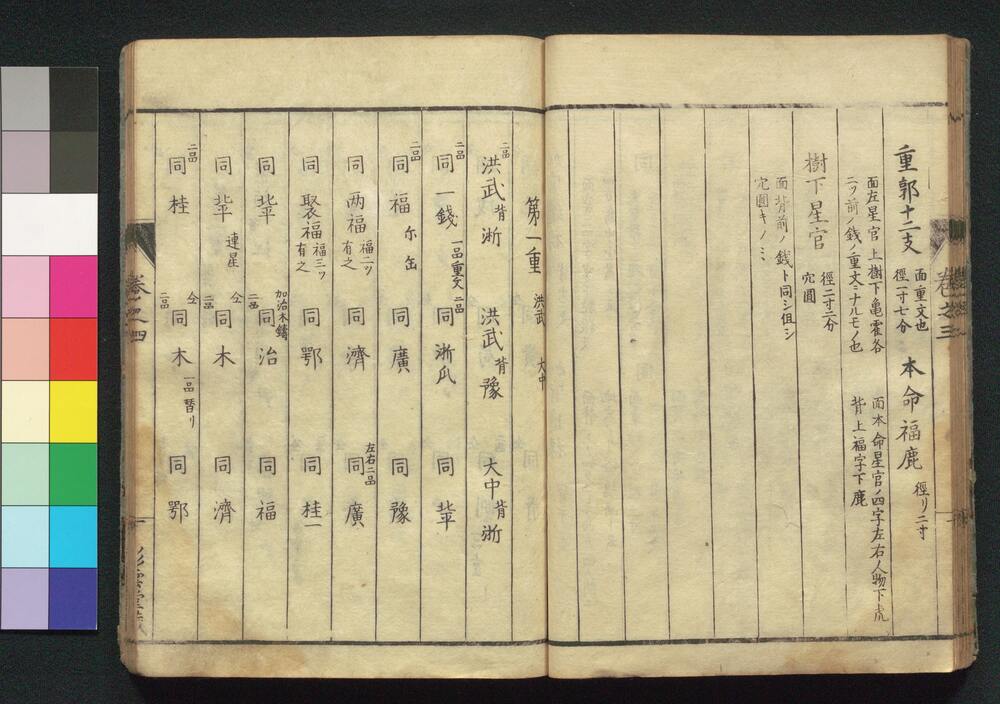 重郭十二支 面重文也
徑一寸七分
本命福鹿 徑リ二寸
面左星官上樹下亀霍各
二ツ前ノ銭ノ重文ミナルモノ也
面本命星官ノ四字左右人物下虎
背上福字下鹿
樹下星官 徑二寸三分
穴圓
面背前ノ銭ト同シ但シ
穴圓キノミ
卷之三
第一重 洪武 大中
二品 洪武 背 浙 洪武 背 豫 大中 背 浙
二品 同 一錢 一品重文 二品 同 浙爪 同 北平
二品 同 福 尓 缶 同 廣 同 豫
同 两福 福二ツ
有之 同 濟 左右二品 同 廣
同 裂福 福三ツ
有之 同 鄂 同 桂一
同 北平 加治木鑄
二品 同 治 同 福
同 北平 連星 仝
二品 同 木 同 濟
二品 同 桂 仝
二品 同 木 一品 替リ 同 鄂
卷之四